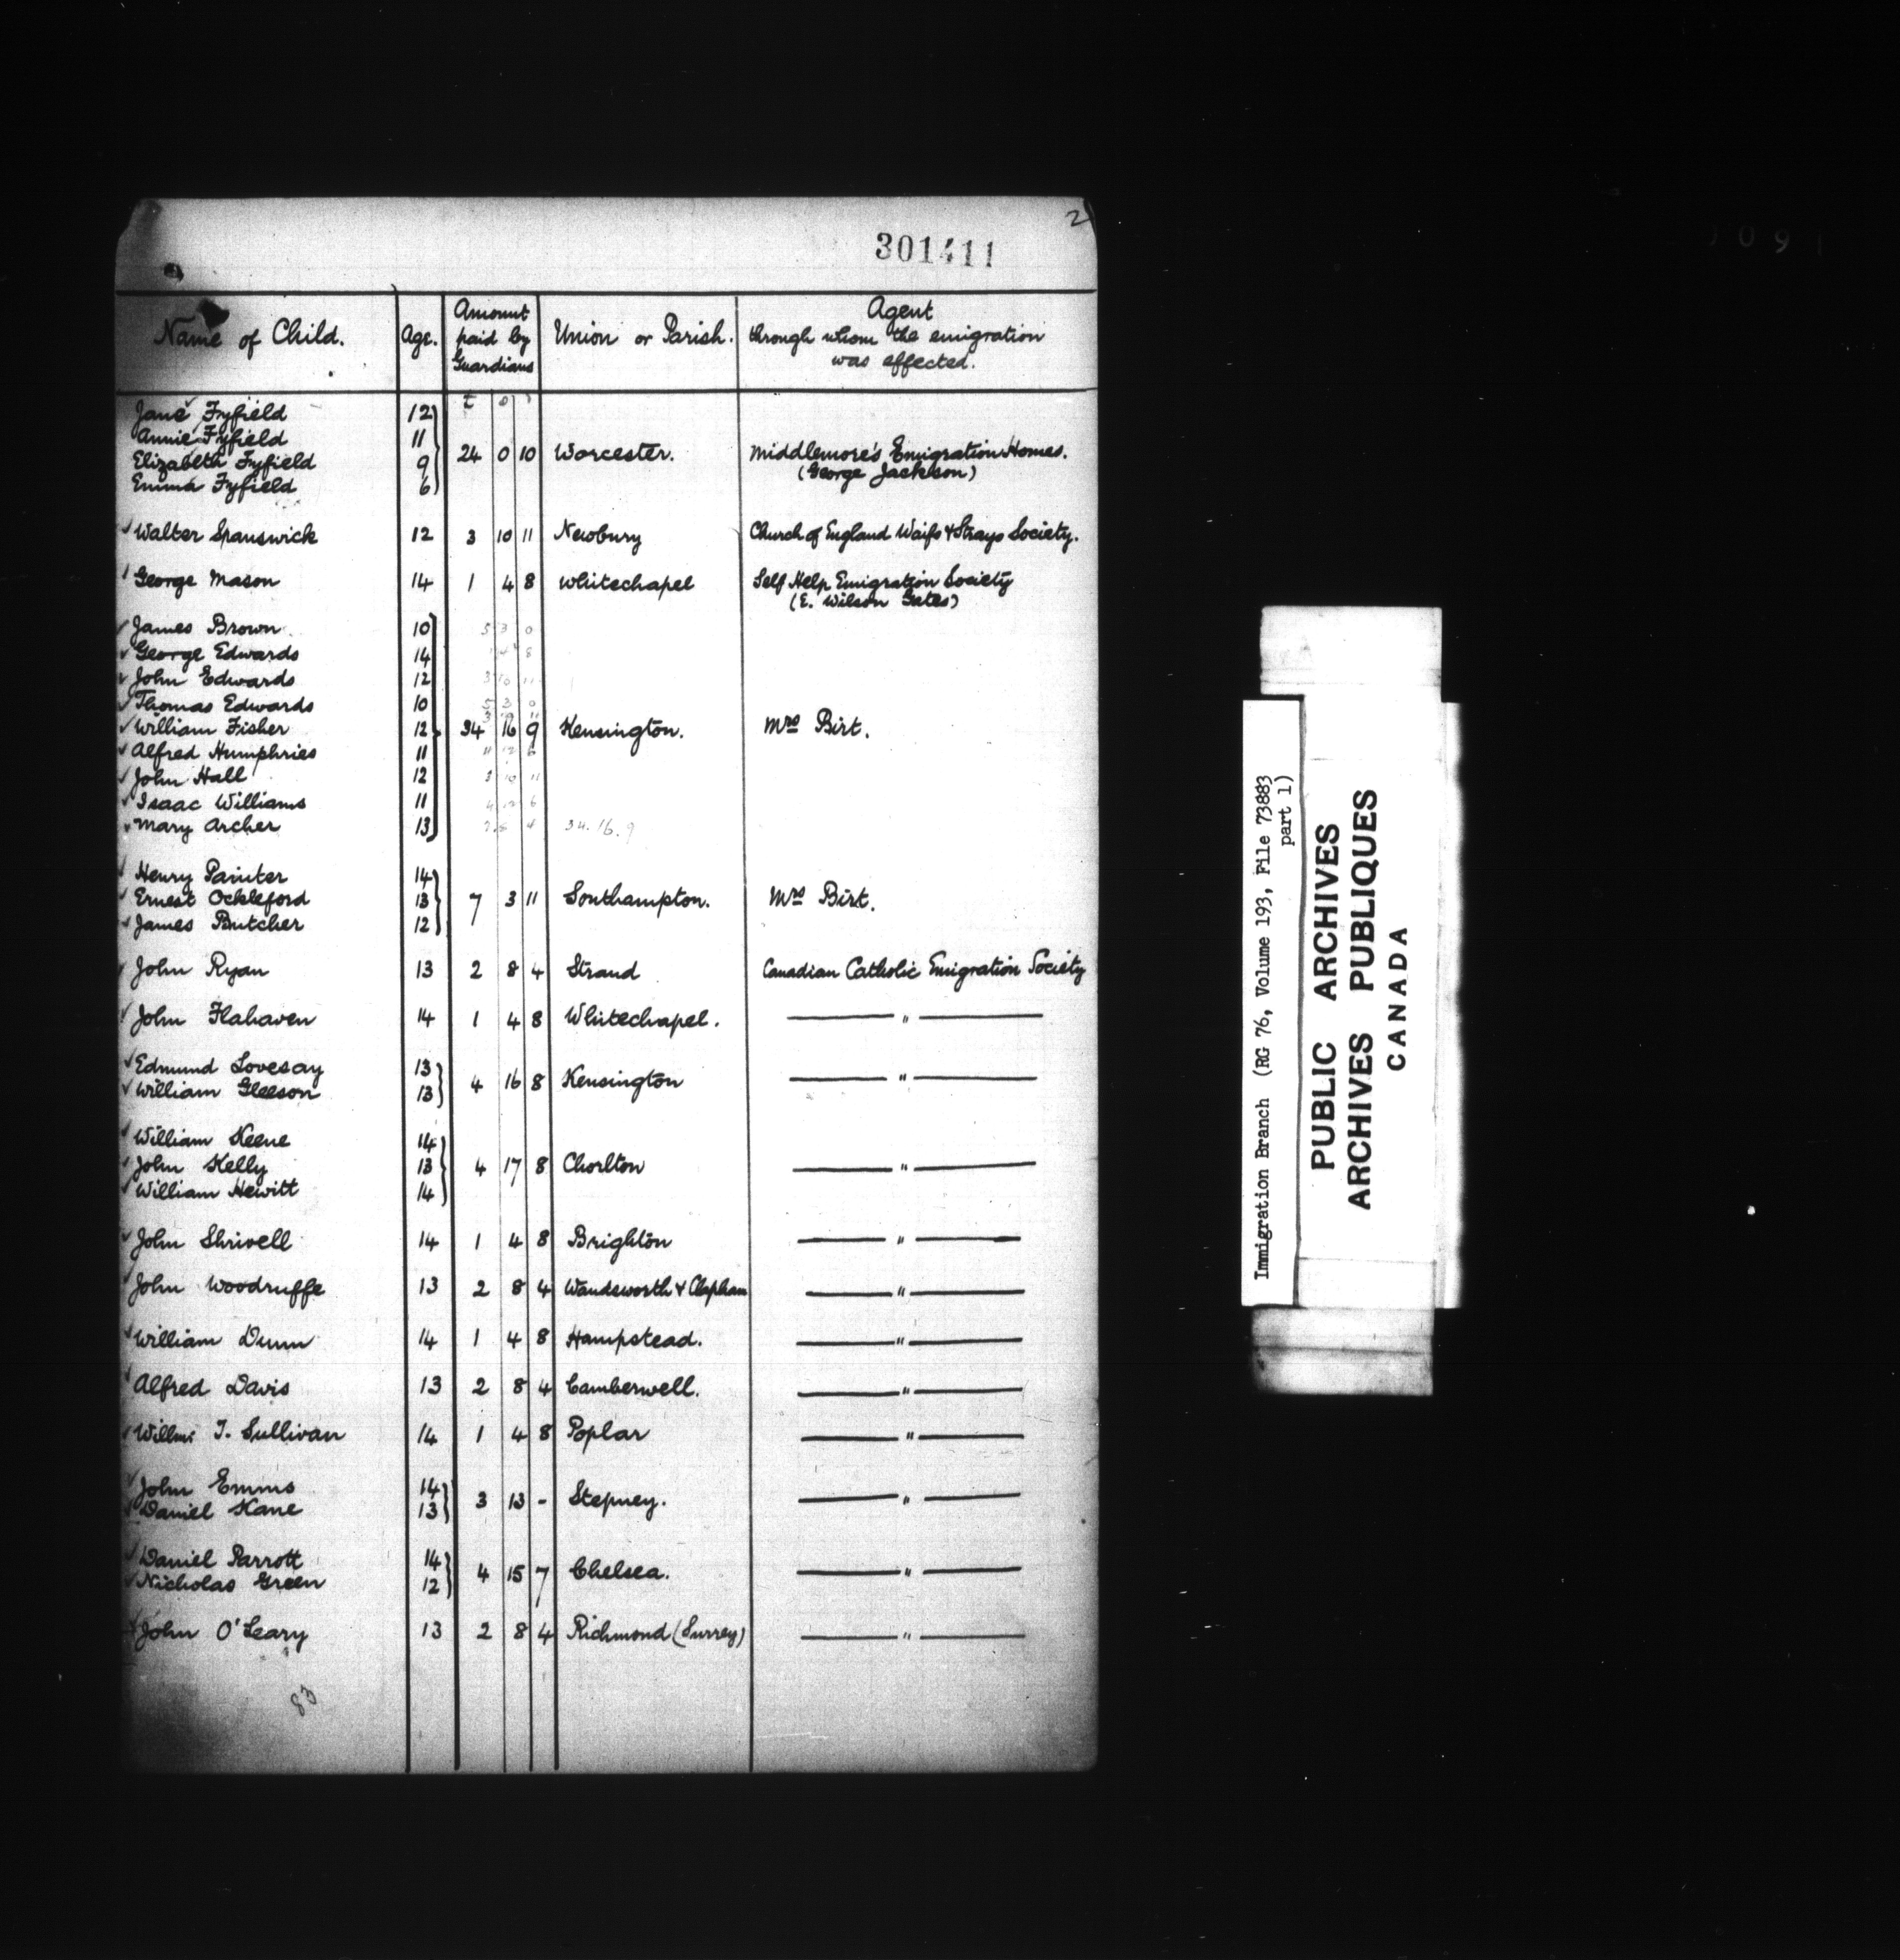 2
301411
Name of Child. Age. Amount paid by Guardians Union or Parish. Agent through whom the emigration was effected.
Jane Fyfield 12
Annie Fyfield 11
Elizabeth Fyfield 9 24 0 10 Worcester. Middlemore's Emigration Homes.
Emma Fyfield 6 (George Jackson)
Walter Spanswick 12 3 10 11 Newbury Church of England Waifs & Strays Society.
George Mason 14 1 4 8 Whitechapel Self Help Emigration Society
(E. Wilson Gates)
James Brown 10 5 3 0
George Edwards 14 8
John Edwards 12 3 10 11
Thomas Edwards 10 5 3 0
William Fisher 12 34 16 9 Kensington. Mrs Birt.
Alfred Humphries 11
John Hall 12 3 10 11
Isaac Williams 11 4 12 6
Mary Archer 13 34.16.9
Henry Painter 14
Ernest Ockleford 13 7 3 11 Southampton. Mrs Birt.
James Butcher 12
John Ryan 13 2 8 4 Strand Canadian Catholic Emigration Society
John Flahaven 14 1 4 8 Whitechapel. — " —
Edmund Lovesay 13
William Gleeson 13 4 16 8 Kensington — " —
William Keene 14
John Kelly 13 4 17 8 Chorlton — " —
William Hewitt 14
John Shrivell 14 1 4 8 Brighton — " —
John Woodruffe 13 2 8 4 Wandsworth & Clapham — " —
William Dunn 14 1 4 8 Hampstead. — " —
Alfred Davis 13 2 8 4 Camberwell. — " —
Willm: T. Sullivan 14 1 4 8 Poplar — " —
John Emms 14
Daniel Kane 13 3 13 - Stepney. — " —
Daniel Parrott 14
Nicholas Green 12 4 15 7 Chelsea. — " —
John O'Leary 13 2 8 4 Richmond (Surrey) — " —
83
Immigration Branch (RG 76, Volume 193, File 73883
part 1)
PUBLIC ARCHIVES
ARCHIVES PUBLIQUES
CANADA